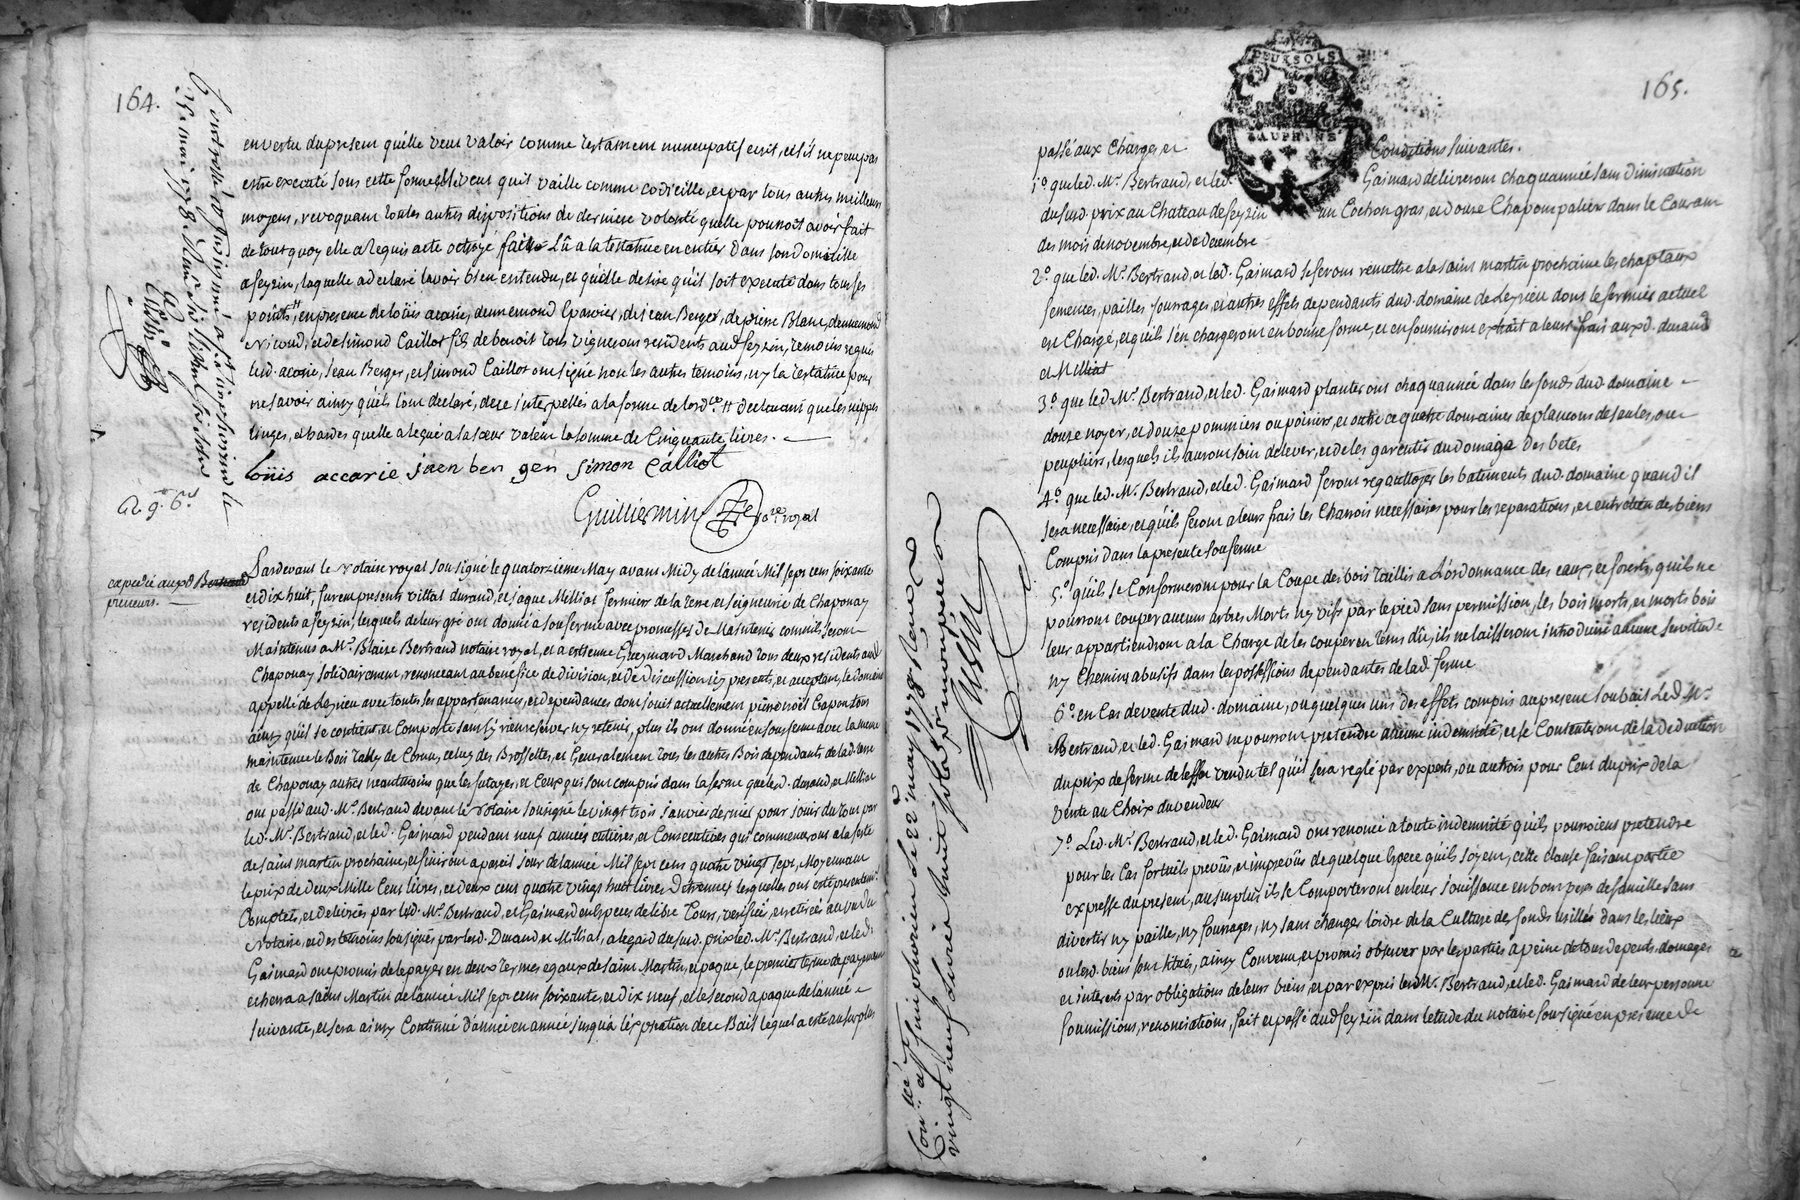 164.
en vertu du present qu'elle veut valoir comme testament nuncupatif ecrit, et s'il ne peut pas
estre executé sous cette forme elle veut qu'il vaille comme codicille, et par tous autres meilleurs
moyens, revoquant toutes autres dispositions de derniere volonté qu'elle pourroit avoir fait
de tout quoy elle a requis acte octroyé fait et Lû a la testatrice en entier dans son domicille
a feyzin, laquelle a declaré lavoir bien entendu, et qu'elle desire qu'il soit executé dans tous ses
points, en presence de loüis acarie, dennemond Eparvier, de jean Berger, de pierre Blanc, dennemond
Nicoud, et de simond Caillot fils de benoit tous vignerons residents aud. feyzin, temoins requis
led. acarie, jean Berger, et simond Caillot ont signé non les autres temoins, ny la testatrice pour
ne savoir ainsy qu'ils l'ont declaré, de ce interpellés a la forme de lord.ce declarant que les nippes
linges, et hardes quelle a legué a la sœur valent la somme de Cinquante livres.
loüis accarie jaen ber gen simon Calliot
Guilliermin no.re royal
R 9.s 6.d
expedié aux d. Bertrand
preneurs.
Pardevant le Notaire royal soussigné le quatorzieme May avant Midy de lanneé Mil sept cent soixante
et dix huit, furent presents vittal durand, et jaque Milliat fermiers de la terre, et seigneurie de Chaponay
residents a feyzin, lesquels de leur gré ont donné a sous ferme avec promesses de Maintenir comm'ils seront
Maintenus a M.e Blaise Bertrand notaire royal, et a estienne Gaymard Marchand tous deux residents aud.
Chaponay solidairement, renonceant au benefice de division, et de discussion icy presents, et acceptant, le domaine
appellé de Leyrieu avec toutes ses appartenances, et dependances dont jouit actuellement
ainsy qu'il se contient, et Comporte sans s'y rien reserver, ny retenir, plus ils ont donné en sous ferme avec la meme
maintenue le Bois Tably de Cornu, celuy des Brossettes, et Generalement tous les autres Bois dependants de lad. terre
de Chaponay autres neantmoins que les futayes, et Ceux qui sont compris dans la ferme que led. durand, et Milliat
ont passé aud. M.e Bertrand devant le Notaire soussigné le vingt trois janvier dernier pour jouir du tout par
led. M.e Bertrand, et led. Gaimard pendant neuf années entieres, et Consecutives qui commenceront a la feste
de saint martin prochaine, et finiront a pareil jour de lannée Mil sept cent quatre vingt sept, Moyennant
le prix de deux Mille Cent livres, et deux cent quatre vingt huit livres d'etrennes lesquelles ont esté presentem.t
Comptés, et delivrés par led. M.e Bertrand, et Gaimard en Especes de libre Cours, verifiées, et retirées au vû du
Notaire, et des temoins soussignés par led. Durand, et Milliat, a legard du sud. prix led. M.e Bertrand, et led.
Gaimard ont promis de le payer en deux termes egaux de saint Martin, et paque, le premier terme de payement
echerra a saint Martin de lannée Mil sept cent soixante, et dix neuf, et le second a paque de lannée
suivante, et sera ainsy Continué d'année en année jusqu'a l'expiration de ce Bail lequel a esté au surplus
165.
DEUX SOLS
DAUPHINE
passé aux Charges, et Conditions suivantes.
1.o que led. M.e Bertrand, et led. Gaimard delivreront chaque année sans diminution
du sud. prix au Chateau de feyzin un Cochon gras, et douze Chapons palier dans le Courant
des mois de novembre, et de decembre.
2.o que led. M.e Bertrand, et led. Gaimard se feront remettre a la saint martin prochaine les chaptaux
semences, pailles, fourrages, et autres effets dependants dud. domaine de Leyrieu dont le fermier actuel
est Chargé, et qu'ils s'en chargeront en bonne forme, et en fourniront extrait a leurs frais auxd. durand
et Milliat
3.o que led. M.e Bertrand, et led. Gaimard planteront chaque année dans les fonds dud. domaine
douze noyers, et douze pommiers ou poiriers, et outre ce quatre douzaines de plancons de saules, ou
peupliers, lesquels ils auront soin delever, et de les garentir du domage des betes
4.o que led. M.e Bertrand, et led. Gaimard feront regouttoyer les batiments dud. domaine quand il
sera necessaire, et qu'ils feront a leurs frais les Charrois necessaires pour les reparations, et entretien des biens
Compris dans la presente sous ferme
5.o qu'ils se Conformeront pour la Coupe des bois Taillis a L'ordonnance des eaux, et forests, qu'ils ne
pourront couper aucuns arbres Morts ny vifs par le pied sans permission, les bois morts, et morts bois
leur appartiendront a la Charge de les couper en tems dû, ils ne laisseront introduire aucune servitude
ny Chemins abusifs dans les possessions dependantes de lad. ferme
6.o en Cas de vente dud. domaine, ou quelques uns des effets compris au present sous bail Led. M.e
Bertrand, et led. Gaimard ne pourront pretendre aucune indemnité, et se Contenteront de la deduction
du prix de ferme de leffet vendu tel qu'il sera reglé par experts, ou au trois pour Cent du prix de la
vente au Choix du vendeur
7.o Led. M.e Bertrand, et led. Gaimard ont renoncé a toute indemnité qu'ils pourroient pretendre
pour les Cas fortuits prevûs, et imprevûs de quelque Espece qu'ils soyent, cette clause faisant partie
expresse du present, au surplus ils se Comporteront en leur jouissance en bons peres de famille sans
divertir ny pailles, ny fourrages, ny sans changer l'ordre de la Culture des fonds usilléz dans les lieux
ou led. biens sont situés, ainsy Convenu, et promis observer par les parties a peine de tous depents, domages
et interets par obligations de leurs biens, et par expres led. M.e Bertrand, et led. Gaimard de leur personne
soumissions, renonciations, fait et passé aud. feyzin dans letude du notaire soussigné en presence de
Con.lé et a st simphorien Le 22 may 1778 Reçu
vingt neuf livres huit sols